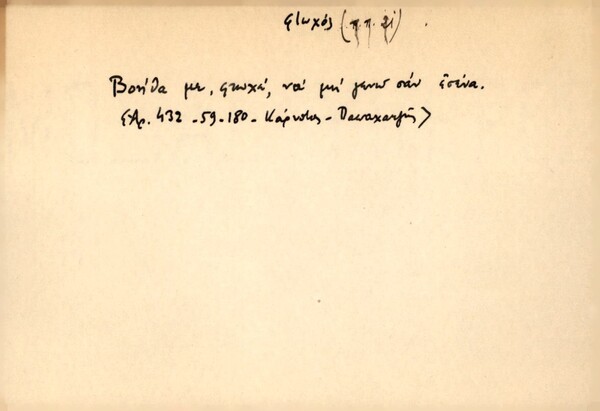 φτωχός (π.π. 21)
Βοήθα με, φτωχέ, νά μή γενώ σάν ἐσένα.
<Αρ. 432 - 59 - 180 - Κάρυστος - Παπαχατζῆς>